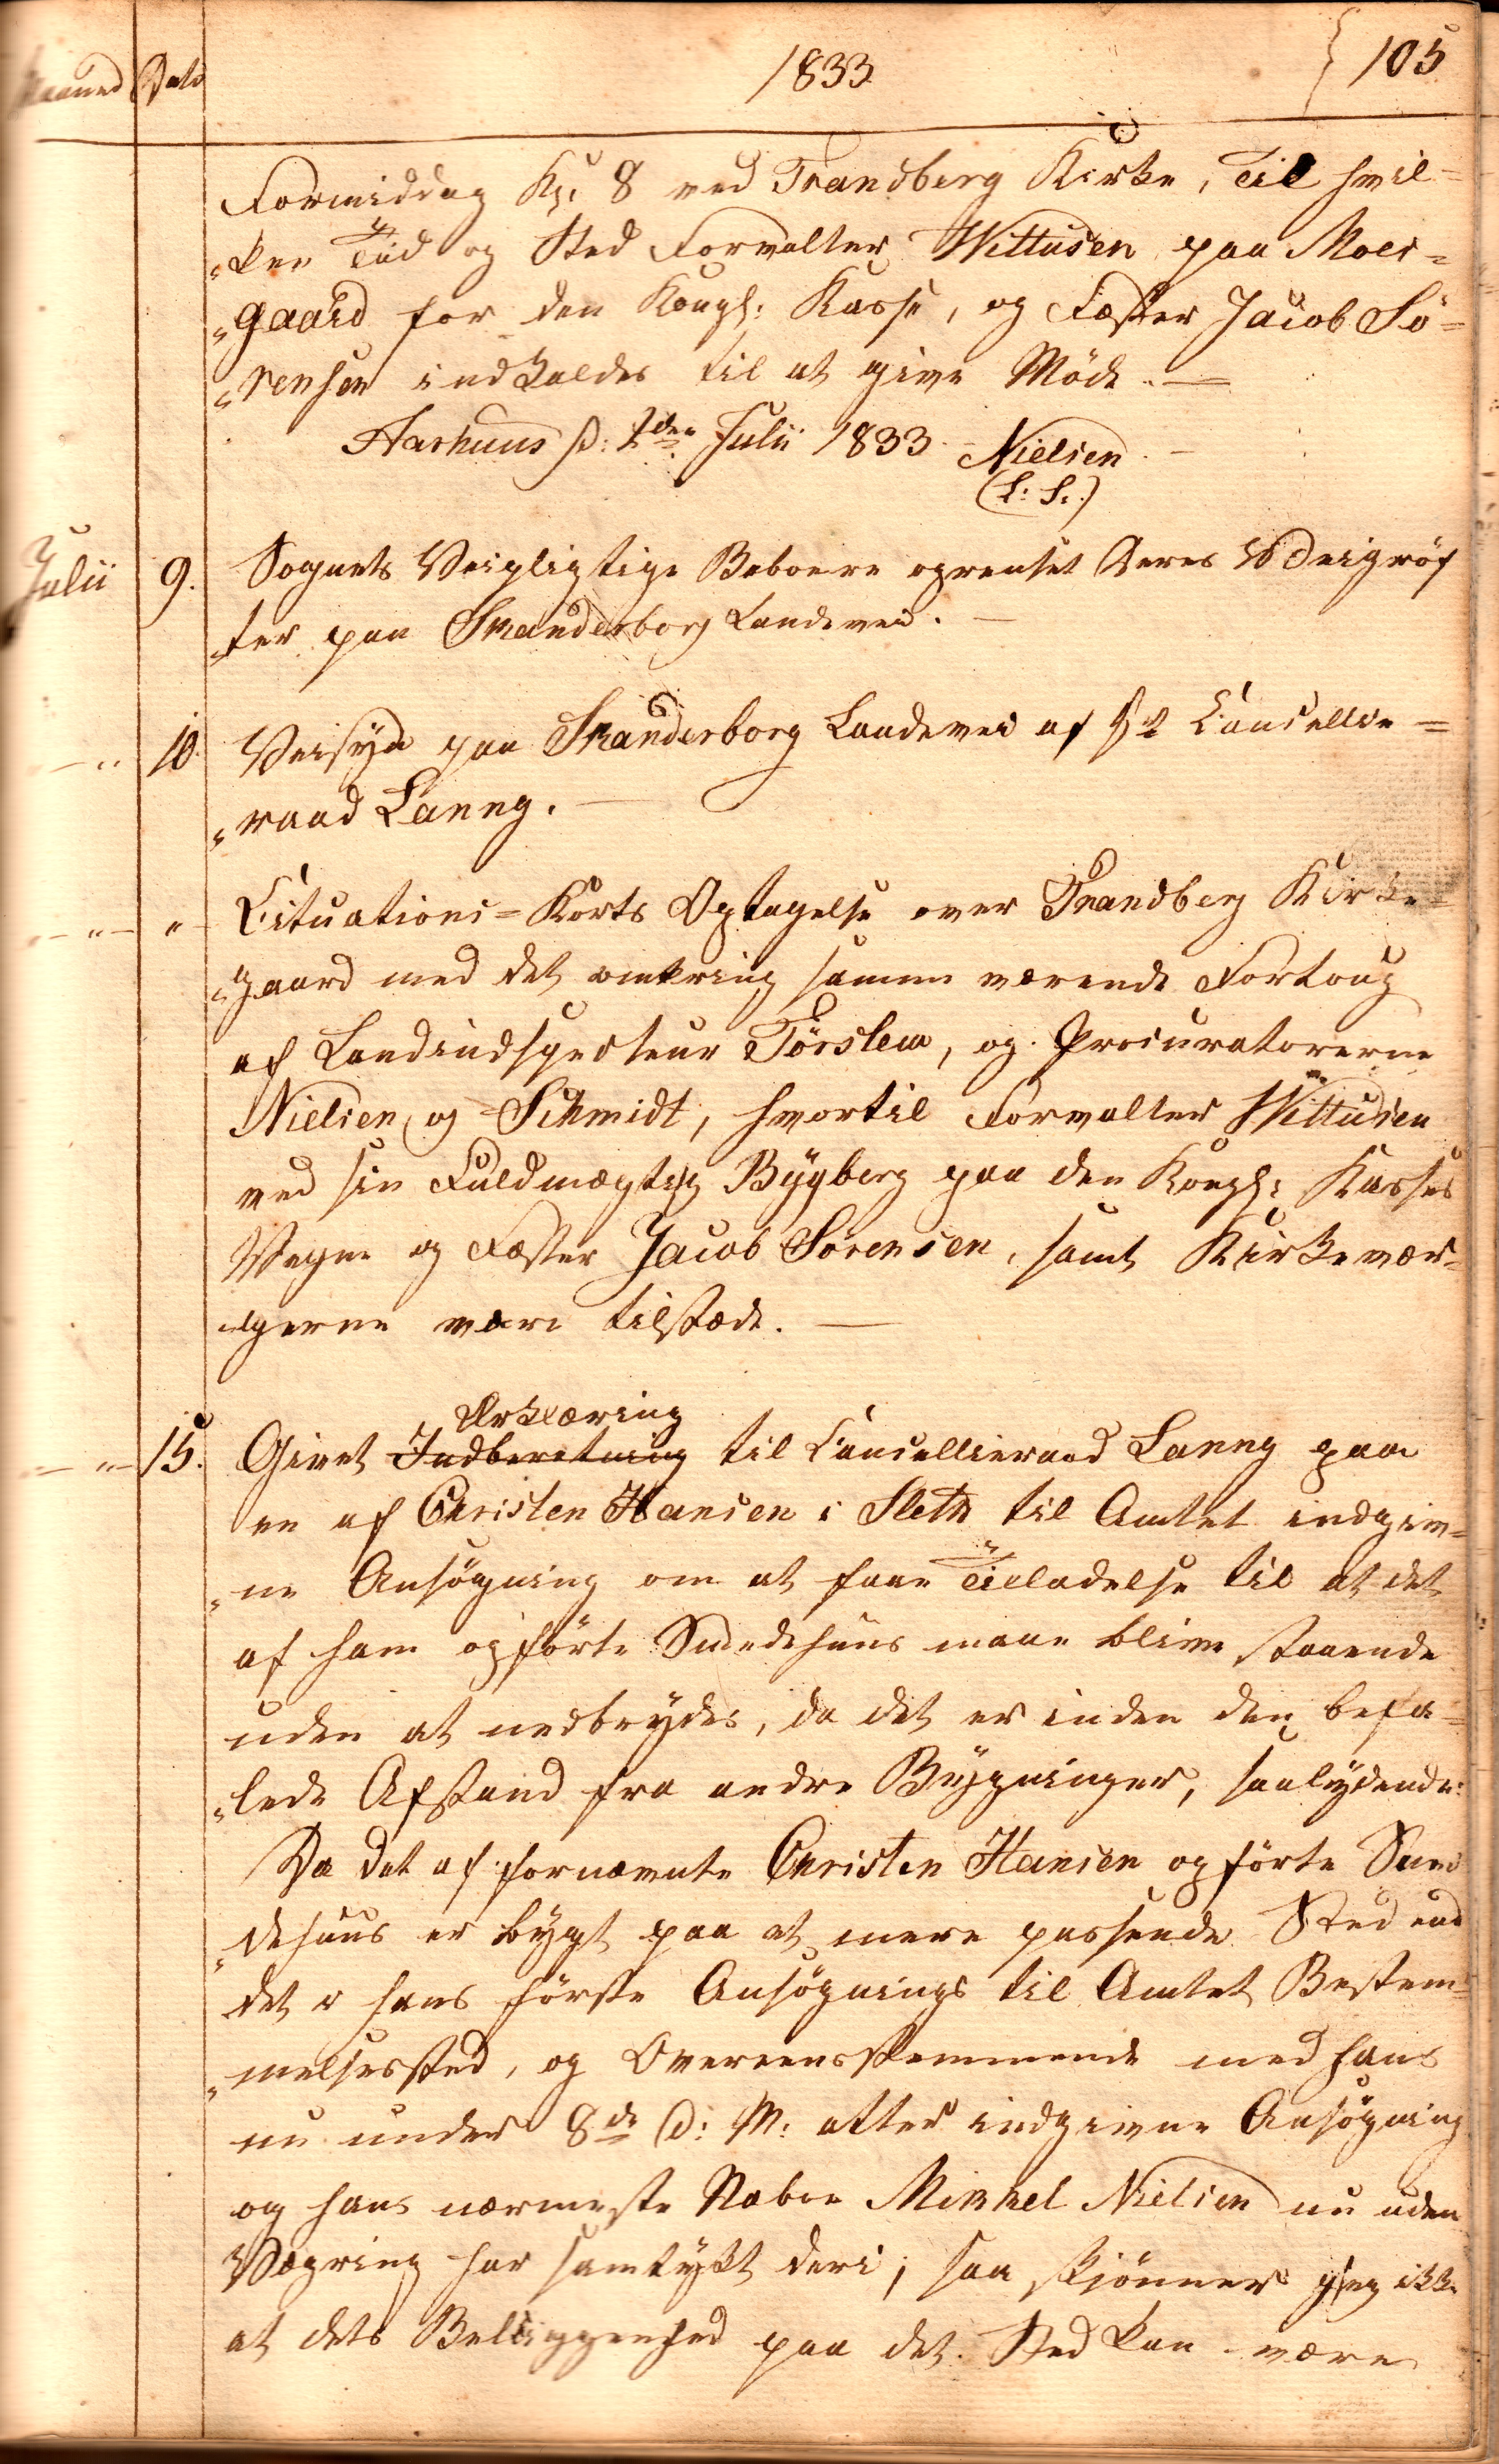 Maaned Dato 1833 105
Formiddag Kl: 8 ved Tranbjerg Kirke, Til hvil=
"ken Tid og Sted Forvalter Wittusen paa Mois=
"gaard for den Kongl: Kasse, og Fæster Jacob Sö=
"rensen indkaldes til at give Möde. —
Aarhuus d: 2den Julii 1833 Nielsen. —
(L. S.)
Julii 9. Sognets Veipligtige Beboere oprenset deres Veigröf
ter paa Skanderborg Landevei. —
— " 10. Veisyn paa Skanderborg Landevei af Hr Cancellie=
"raad Lanng. —
— " — " Situations=Korts Optagelse over Tranbjerg Kirke=
"gaard med det omkring samme værende Fortoug
af Landindspecteur Törslew, og Procuratorerne
Nielsen og Schmidt, hvortil Forvalter Wittusen
ved sin Fuldmægtig Bÿgberg paa den Kongl: Kasses
Vegne og Fæster Jacob Sörensen, samt Kirkevær=
"gerne være tilstæde. —
Erklæring
— " — 15. Givet Indberetning til Cancellieraad Lanng paa
en af Christen Hansen i Sleth til Amtet indgiv=
"ne Ansögning om at faae Tilladelse til at det
af ham opförte Smedehuus maae blive staaende
uden at nedbrydes, da det er inden den befa=
"lede Afstand fra andre Bÿgninger, saalydende:
Da det af fornævnte Christen Hansen opförte Sme
"dehuus er bÿgt paa et mere passende Sted end
det i hans förste Ansögnings til Amtet Bestem=
"melsessted, og Overeensstemmende med hans
nu under 8de d: M: atter indgivne Ansögning
og hans nærmeste Naboe Mikkel Nielsen nu uden
Vægring har samtÿkt deri; saa skjönner jeg ikke
at dets Beliggenhed paa det Sted kan være